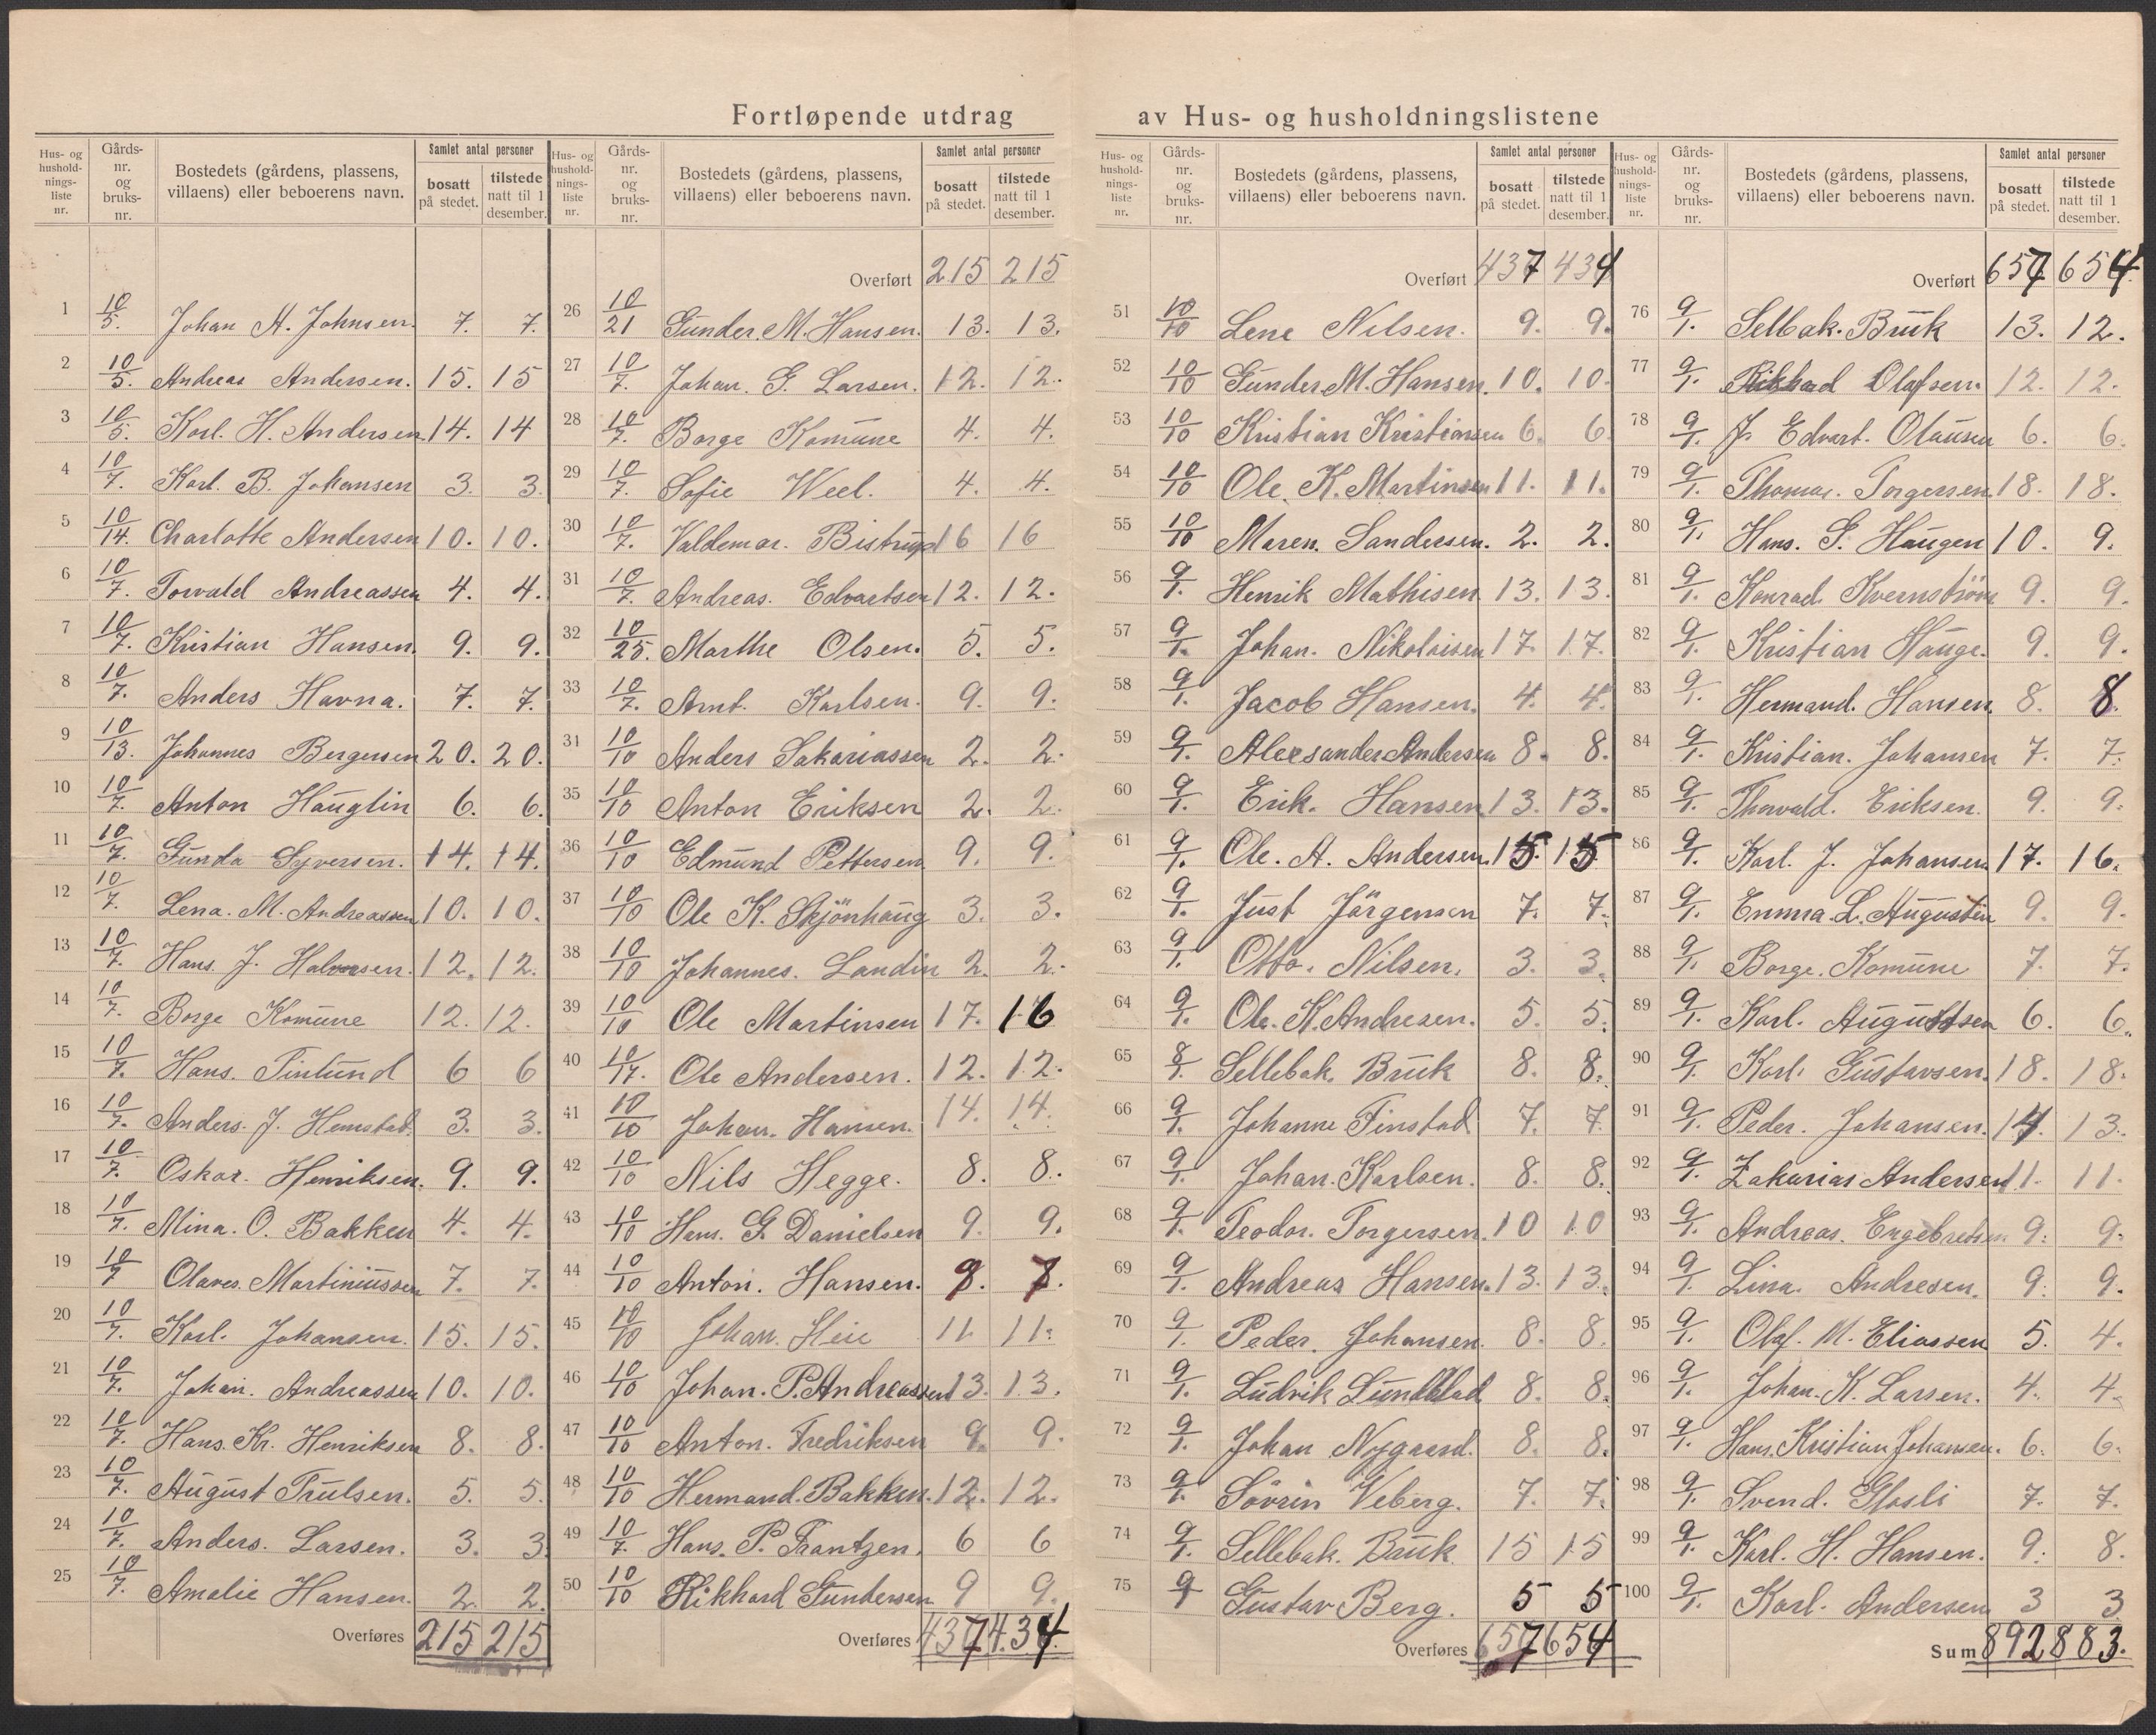 Fortløpende utdrag av Hus- og husholdningslistene
Hus- og husholdnings-liste nr. | Gårds-nr. og bruks-nr. | Bostedets (gårdens, plassens, villaens) eller beboerens navn. | Samlet antal personer bosatt på stedet. | tilstede natt til 1 desember.
1 10/5. Johan A. Johnsen. 7. 7.
2 10/5. Andreas Andersen. 15. 15
3 10/5. Karl. H. Andersen. 14. 14
4 10/7. Karl. B. Johansen 3. 3.
5 10/14. Charlotte Andersen 10. 10.
6 10/7. Torvald Andreassen 4. 4.
7 10/7. Kristian Hansen. 9. 9.
8 10/7. Anders Havna. 7. 7.
9 10/13. Johannes Bergersen 20. 20.
10 10/7. Anton Hauglin 6. 6.
11 10/7. Gunda Syversen. 14. 14.
12 10/7. Lena. M. Andreassen 10. 10.
13 10/7. Hans J. Halvorsen. 12. 12.
14 10/7. Borge Komune 12. 12.
15 10/7. Hans. 6 6
16 10/7. Anders. J. Hemstad. 3. 3.
17 10/7. Oskar. Henriksen. 9. 9.
18 10/7. Mina. O. Bakken 4. 4.
19 10/7 Olaves. Martiniussen 7. 7.
20 10/7. Karl. Johansen. 15. 15.
21 10/7. Johan. Andreassen 10. 10.
22 10/7. Hans. Kr. Henriksen 8. 8.
23 10/7. August Trulsen. 5. 5.
24 10/7. Anders. Larsen. 3. 3
25 10/7. Amalie Hansen. 2. 2.
Overføres 215 215
Hus- og husholdnings-liste nr. | Gårds-nr. og bruks-nr. | Bostedets (gårdens, plassens, villaens) eller beboerens navn. | Samlet antal personer bosatt på stedet. | tilstede natt til 1 desember.
Overført 215 215
26 10/21 Gunder. M. Hansen. 13. 13.
27 10/7. Johan. G. Larsen. 12. 12.
28 10/7. Borge Komune 4. 4.
29 10/7. Sofie Weel. 4. 4.
30 10/7. Valdemar. Bistrup 16 16
31 10/7. Andreas. Edvartsen 12. 12.
32 10/25. Marthe Olsen. 5. 5.
33 10/7. Arnt. Karlsen. 9. 9.
31 10/10 Anders Sakariassen 2. 2.
35 10/10 Anton Eriksen 2. 2.
36 10/10 Edmund Pettersen 9. 9.
37 10/10 Ole K. Skjönhaug 3. 3.
38 10/10 Johannes. Landin 2. 2.
39 10/10 Ole Martinsen 17. 16
40 10/17. Ole Andersen. 12. 12.
41 10/10 Johan. Hansen. 14. 14.
42 10/10 Nils Hegge. 8. 8.
43 10/10 Hans. G. Danielsen 9. 9.
44 10/10 Anton. Hansen.
45 10/10 Johan. Heie 11. 11.
46 10/10 Johan. P. Andreassen 13. 13.
47 10/10 Anton. Fredriksen 9. 9.
48 10/10 Hermand. Bakken. 12. 12.
49 10/7. Hans. P. Frantzen. 6 6
50 10/10 Rikhard Gundersen 9 9.
Overføres 437 434
Hus- og husholdnings-liste nr. | Gårds-nr. og bruks-nr. | Bostedets (gårdens, plassens, villaens) eller beboerens navn. | Samlet antal personer bosatt på stedet. | tilstede natt til 1 desember.
Overført 437 434
51 10/10 Lene Nilsen. 9. 9.
52 10/10 Gunder M. Hansen. 10. 10.
53 10/10 Kristian Kristiansen 6. 6
54 10/10 Ole. K. Martinsen 11. 11.
55 10/10 Maren. Sandersen. 2. 2.
56 9/1. Henrik Mathisen 13. 13.
57 9/1. Johan. Nikolaisen 17. 17.
58 9/1. Jacob Hansen. 4. 4.
59 9/1. Alexsander Andersen 8. 8.
60 9/1. Erik. Hansen 13. 13.
61 9/1. Ole. A. Andersen. 15. 15
62 9/1. Just Jörgensen 7. 7.
63 9/1. Otto. Nilsen. 3. 3.
64 9/1. Ole. K. Andresen. 5. 5.
65 8/1. Sellebak. Bruk 8. 8.
66 9/1. Johanne Finstad 7. 7.
67 9/1. Johan. Karlsen. 8. 8.
68 9/1. Teodor. Torgersen. 10 10
69 9/1. Andreas Hansen. 13. 13.
70 9/1. Peder. Johansen. 8. 8.
71 9/1. Ludvik Lundblad 8. 8.
72 9/1. Johan Nygaard. 8. 8.
73 9/1. Sörrin Veberg. 7. 7.
74 9/1. Sellebak. Bruk. 15 15
75 9 Gustav Berg. 5 5
Overføres 657 654
Hus- og husholdnings-liste nr. | Gårds-nr. og bruks-nr. | Bostedets (gårdens, plassens, villaens) eller beboerens navn. | Samlet antal personer bosatt på stedet. | tilstede natt til 1 desember.
Overført 657 654
76 9/1. Selbak. Bruk 13. 12.
77 9/1. Rikhard Olafsen. 12. 12.
78 9/1. J. Edvart. Olausen 6. 6.
79 9/1. Thomas. Torgersen. 18. 18.
80 9/1. Hans. S. Haugen 10. 9.
81 9/1. Konrad. Kvernström 9. 9.
82 9/1. Kristian Hauge. 9. 9.
83 9/1. Hermand. Hansen. 8. 8.
84 9/1. Kristian. Johansen 7. 7.
85 9/1. Thorvald. Eriksen. 9. 9.
86 9/1. Karl. J. Johansen 17. 16.
87 9/1. Emma. L. Augustin 9. 9.
88 9/1. Borge. Komune 7. 7.
89 9/1. Karl. Augustsen 6. 6.
90 9/1. Karl. Gustavsen. 18. 18.
91 9/1. Peder. Johansen. 14. 13.
92 9/1. Zakarias Andersen 11. 11.
93 9/1. Andreas. Engebretsen 9. 9.
94 9/1. Lina. Andresen. 9. 9.
95 9/1. Olaf. M. Eliassen 5. 4.
96 9/1. Johan. K. Larsen. 4. 4.
97 9/1. Hans. Kristian Johansen. 6. 6.
98 9/1. Svend. Glosli 7. 7.
99 9/1. Karl. H. Hansen. 9. 8.
100 9/1. Karl. Andersen 3 3
Sum 892 883.